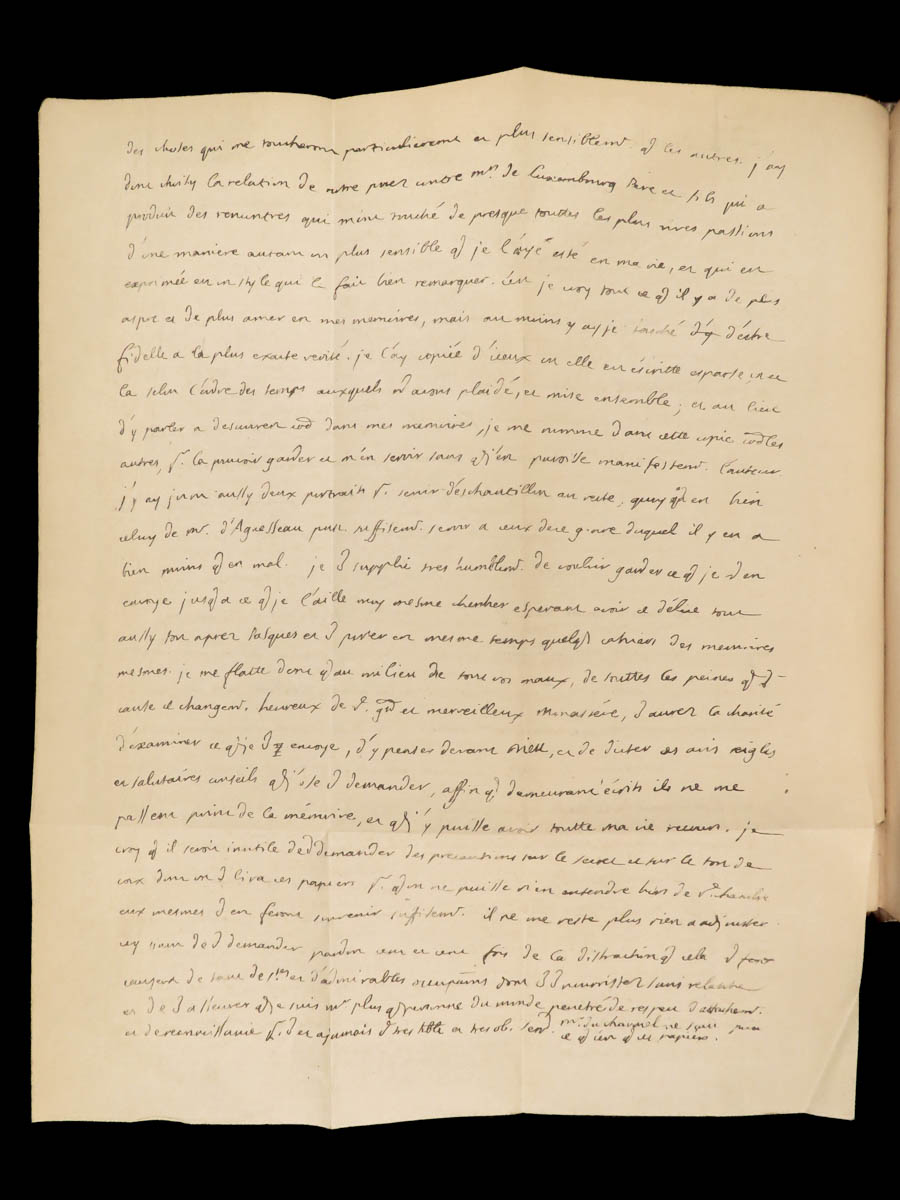 des choses qui me toucheront particulierement et plus sensiblemt. q̃ les autres. j'ay
donc choisy la relation de notre procez contre mrs. de Luxembourg Pere et fils qui a
produit des rencontres qui m'ont touché de presque touttes les plus vives passions
d'une maniere autant ou plus sensible q̃ je l'aye esté en ma vie, et qui est
exprimée en un style qui le fait bien remarquer. c'est je croy tout ce q̃ il y a de plus
aspre et de plus amer en mes memoires, mais au moins y ay je tasché d'estre
fidelle a la plus exacte verité. je l'ay copiée d'iceux ou elle est écritte esparse ça et
la selon l'ordre des temps auxquels nõ avons plaidé, et mise ensemble; et au lieu
d'y parler a descouvert cõe dans mes memoires, je me nomme dans cette copie cõe les
autres, pr. la pouvoir garder et m'en servir sans q̃ j'en paroisse manifestemt. l'auteur.
j'y ay joint aussy deux portraits pr. servir d'eschantillon au reste, quoyq̃ en bien
celuy de mr. d'Aguesseau peut suffisemt. servir a ceux de ce genre duquel il y en a
bien moins q̃ en mal. je supplie tres humblemt. de vouloir garder ce q̃ je en
envoye jusq̃ a ce q̃ je l'aille moy mesme chercher esperant avoir ce délice tout
aussy tost aprez Pasques et porter en mesme temps quelq̃s cahiers des memoires
mesmes. je me flatte donc q̃ au milieu de tous vos maux, de touttes les peines q̃
cause ce changemt. heureux de grd et merveilleux Monastére, aurez la charité
d'examiner ce q̃ je envoye, d'y penser devant Dieu, et de dicter ces avis reigles
et salutaires conseils q̃ j'ose demander, affin q̃ demeurant écrits ils ne me
passent point de la mémoire, et q̃ j'y puisse avoir toutte ma vie recours. je
croy q̃ il seroit inutile de demander des precautions sur le secret et sur le ton de
voix dont on lira ces papiers pr. q̃ on ne puisse rien entendre hors de vre. chambre
eux mesmes en feront souvenir suffisemt. il ne me reste plus rien a adjouster
icy sinon de demander pardon cent et cent fois de la distraction q̃ cela
causera de tant de stes et d'admirables occupaõns dont nourissez sans relasche
et de asseurer q̃ je suis mr. plus q̃ personne du monde penetré de respect d'attachemt.
et de reconoissance pr. et a jamais tres hble et tres ob. serr.
mr. du charmel ne scait point
ce q̃ c'est q̃ ces papiers.